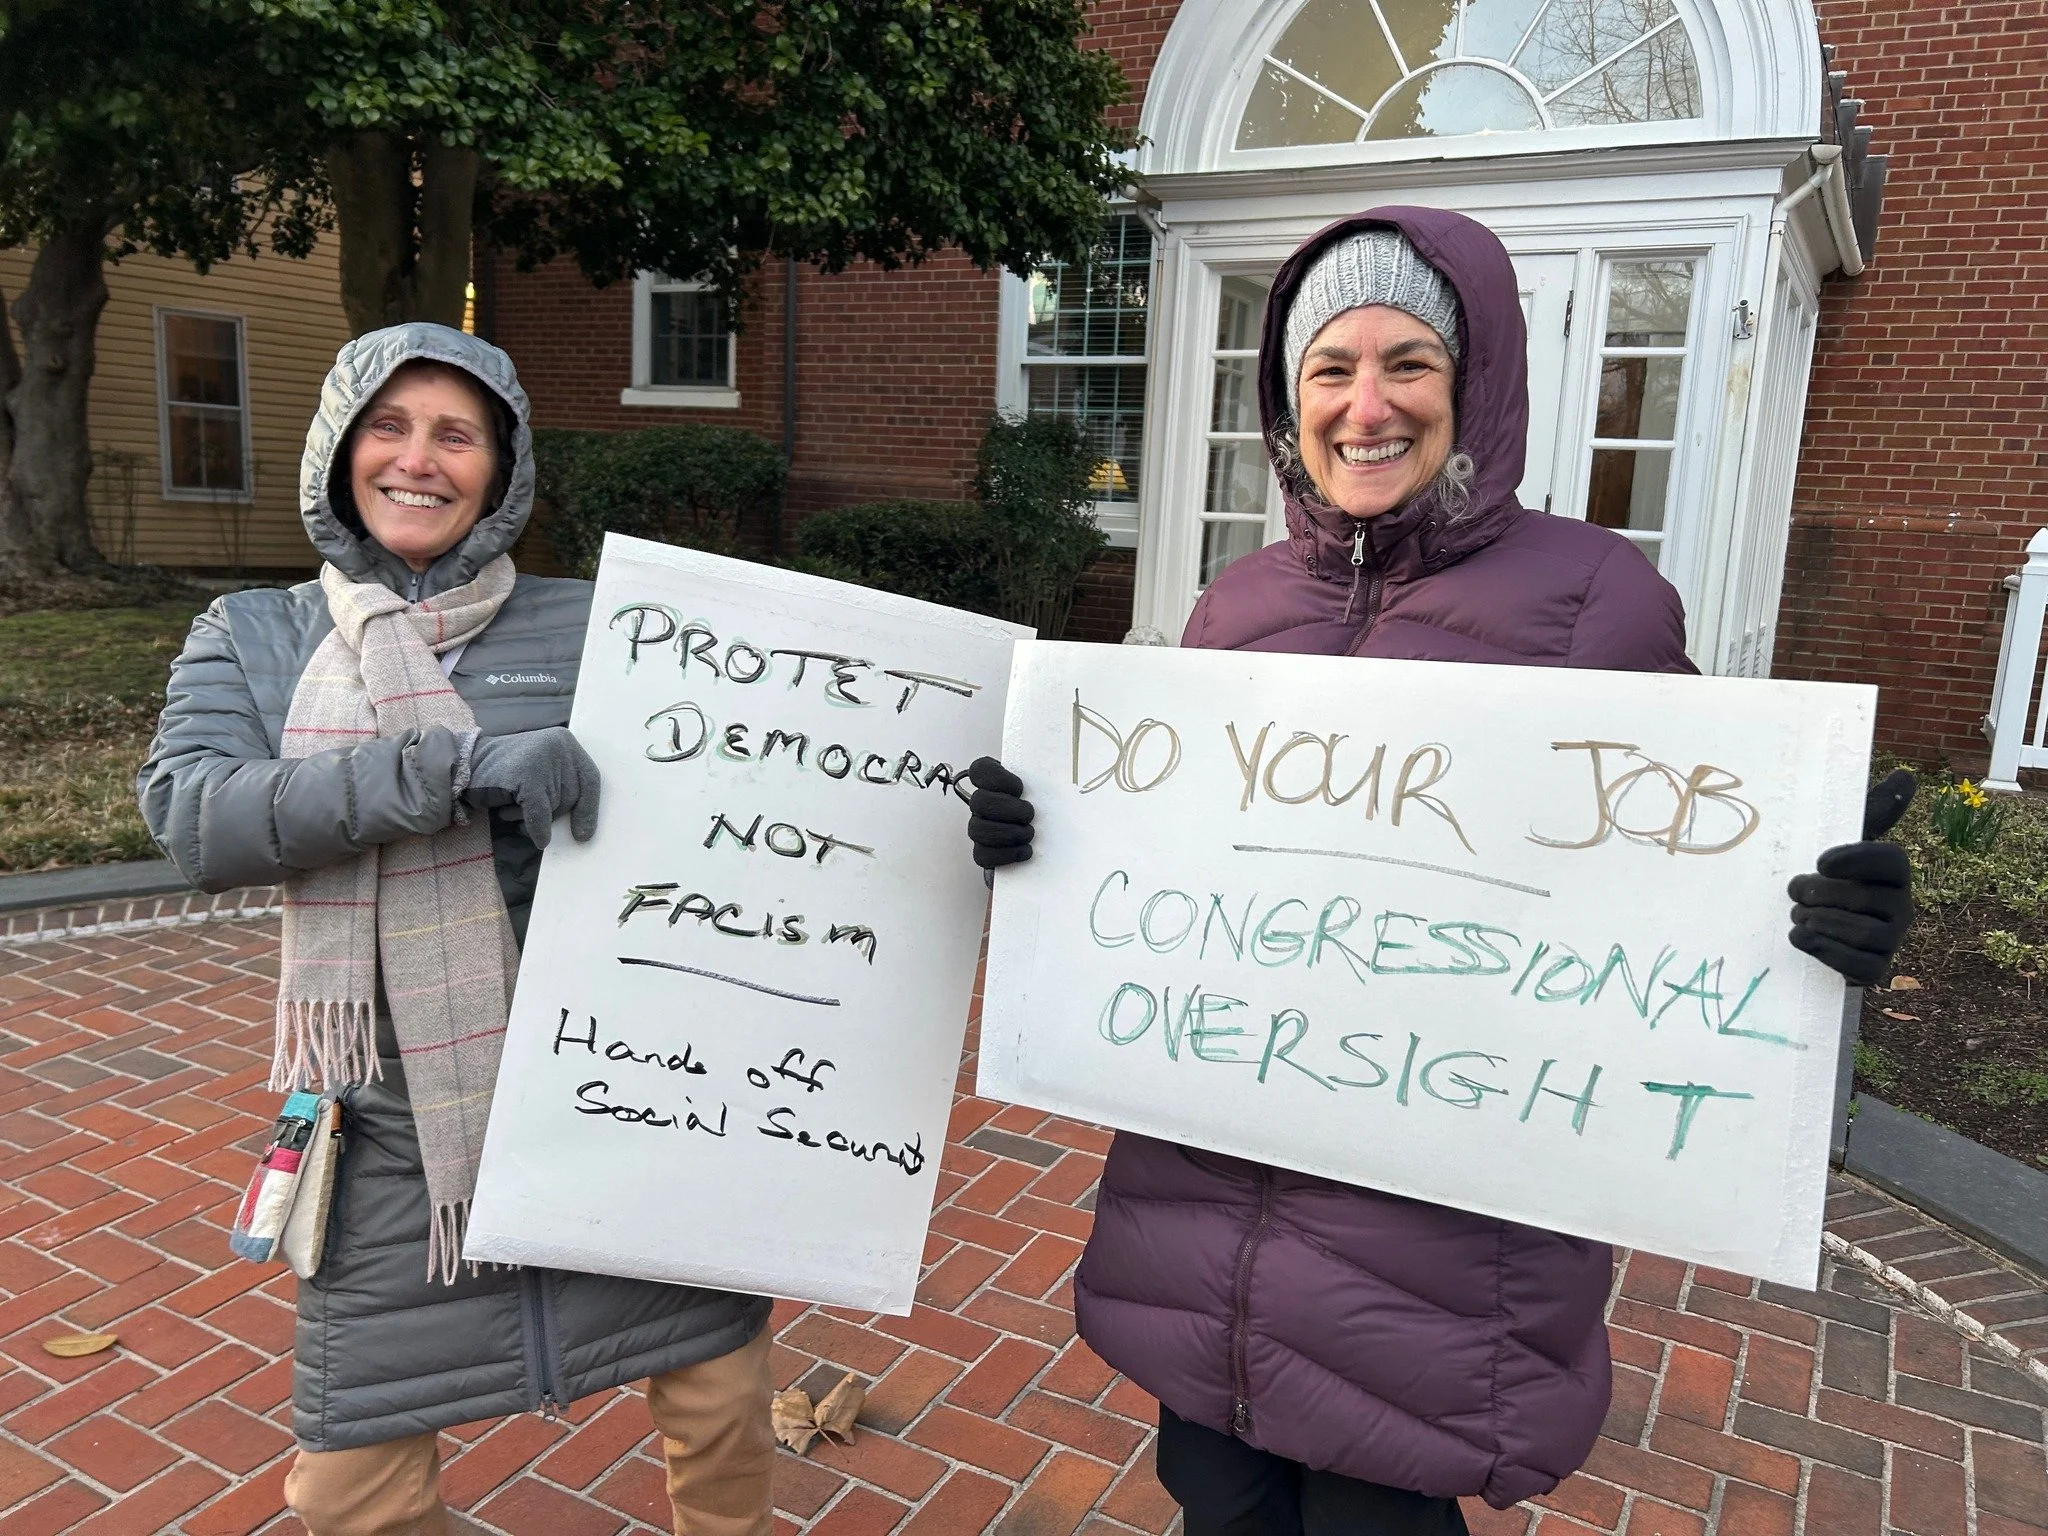 Columbia
PROTECT
DEMOCRAC
NOT
FACISM
Hands off
Social Security
DO YOUR JOB
CONGRESSIONAL
OVERSIGHT